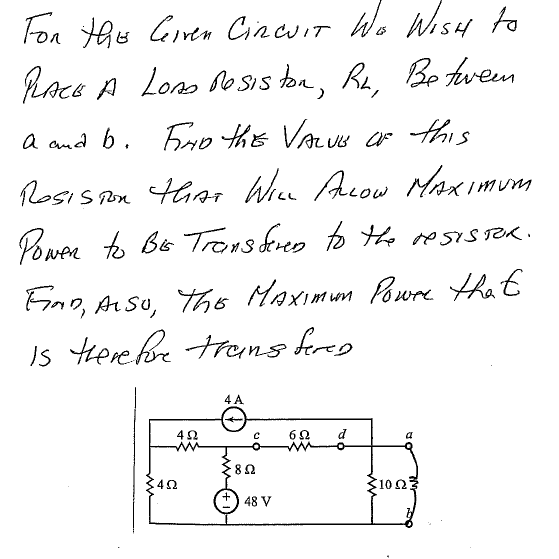 For this Given Circuit We Wish to
Place A Load Resistor, RL, Between
a and b. Find the Value of this
Resistor that Will Allow Maximum
Power to Be Transfered to the resistor.
Find, Also, The Maximum Power that
is therefore transfered
4 A
4 Ω c 6 Ω d a
8 Ω
4 Ω 10 Ω
+
− 48 V
b